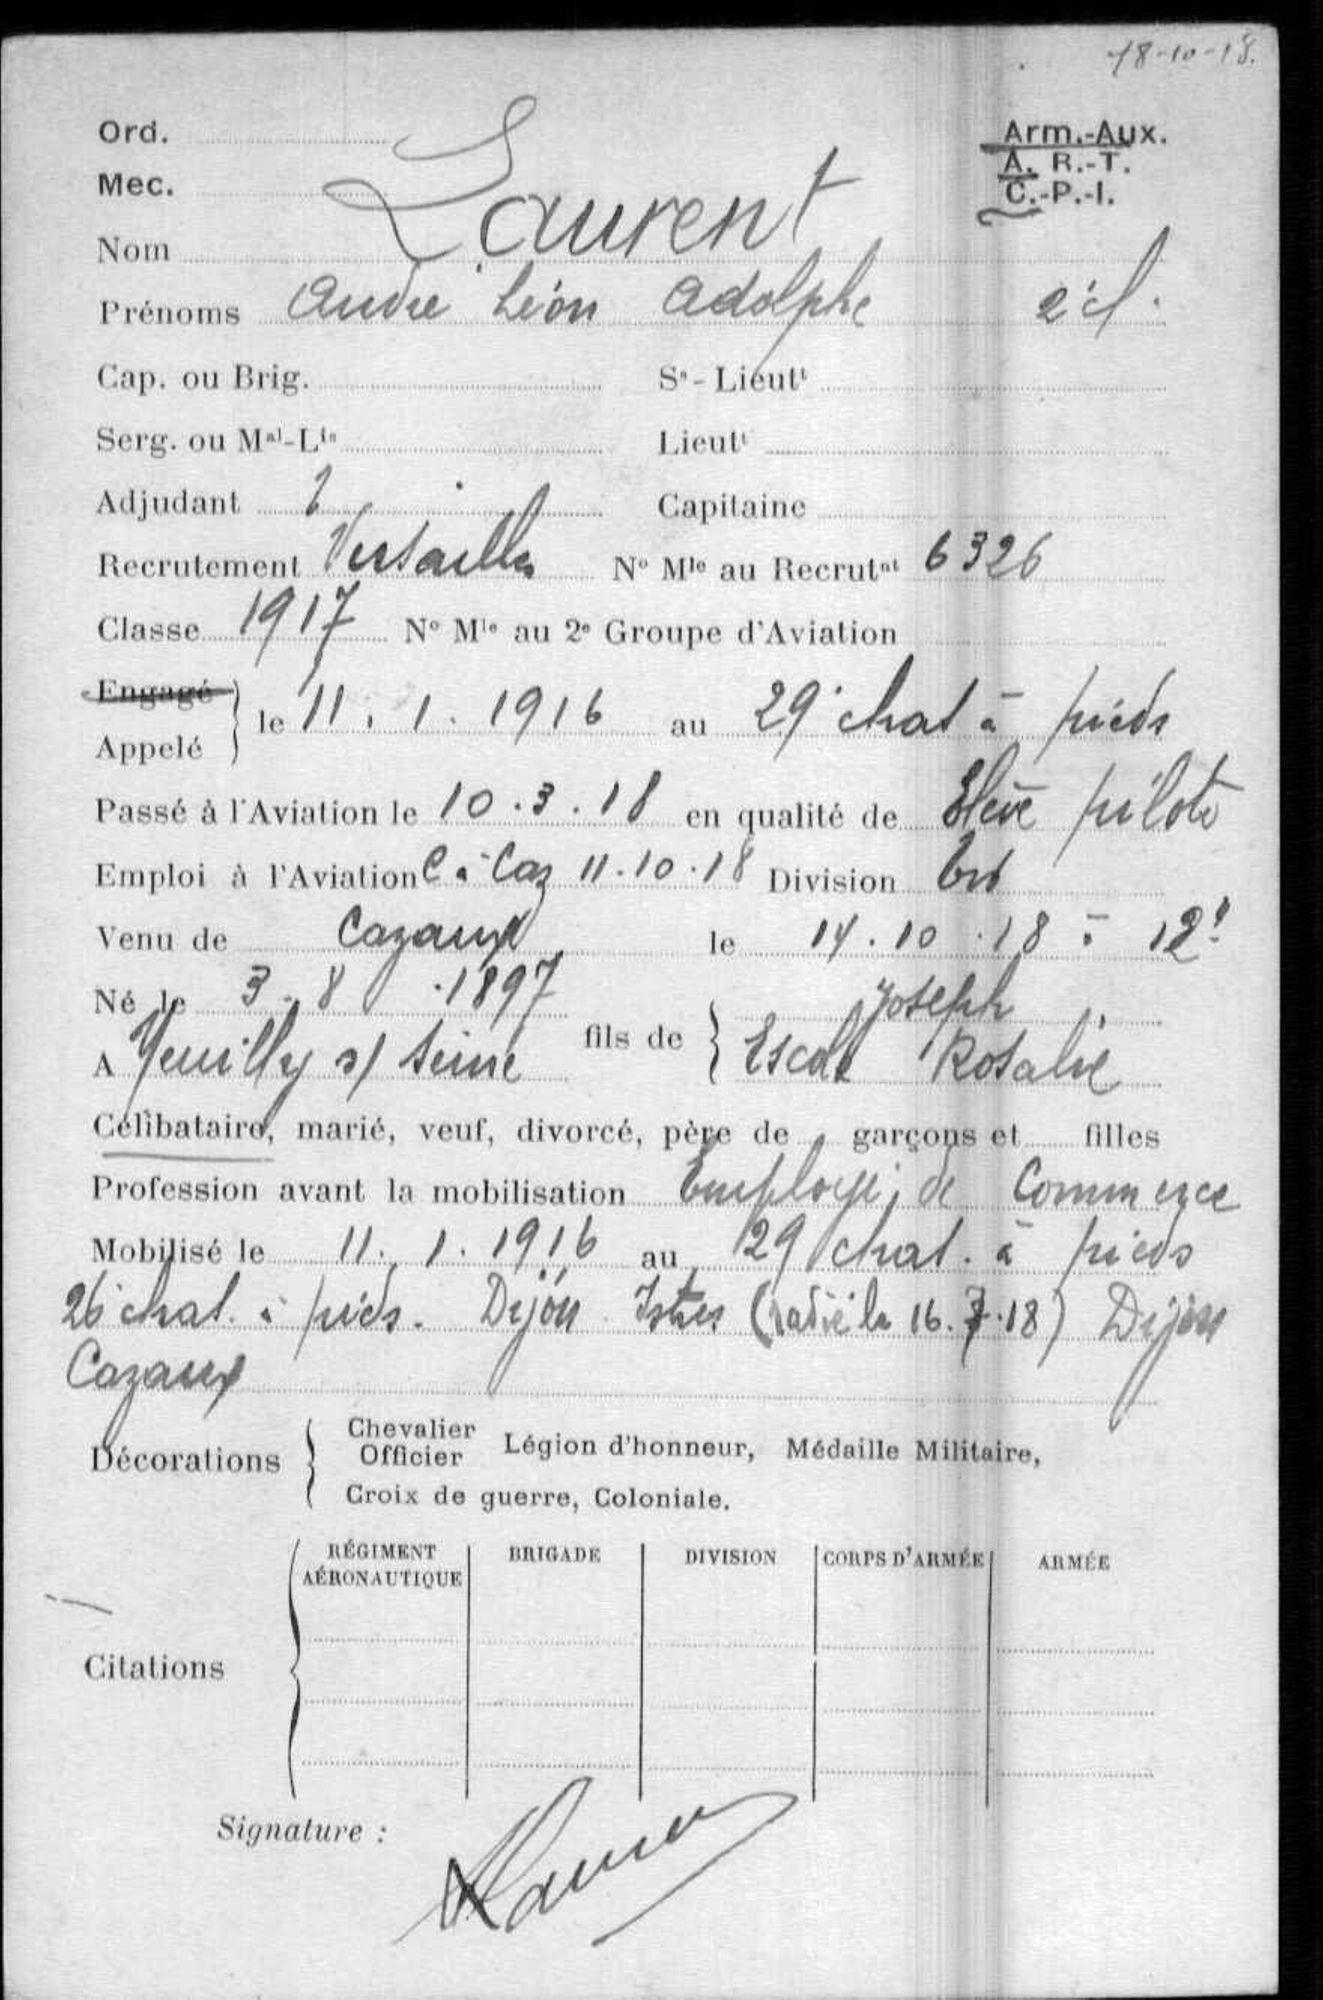 18-10-18.
Ord.
Arm.-Aux.
Mec.
A. R.-T.
C.-P.-I.
Nom Laurent
Prénoms André Léon Adolphe 2e cl.
Cap. ou Brig. Ss - Lieutt
Serg. ou Mal-Lis Lieutt
Adjudant Capitaine
Recrutement Versailles No Mle au Recrutnt 6326
Classe 1917 No Mle au 2e Groupe d'Aviation
Engagé
Appelé } le 11. 1. 1916 au 29e chas à pieds
Passé à l'Aviation le 10.3.18 en qualité de Elève pilote
Emploi à l'Aviation C à Caz 11.10.18 Division
Venu de Cazaux le 14.10.18
Né le 3.8.1897
A Neuilly s/ Seine fils de { Joseph
Rosalie
Célibataire, marié, veuf, divorcé, père de garçons et filles
Profession avant la mobilisation Employé de Commerce
Mobilisé le 11. 1. 1916 au 29 chas. à pieds
26e chas. à pieds. Dijon Istres (radié le 16.7.18) Dijon
Cazaux
Décorations { Chevalier
Officier Légion d'honneur, Médaille Militaire,
Croix de guerre, Coloniale.
Citations
RÉGIMENT AÉRONAUTIQUE BRIGADE DIVISION CORPS D'ARMÉE ARMÉE
Signature :